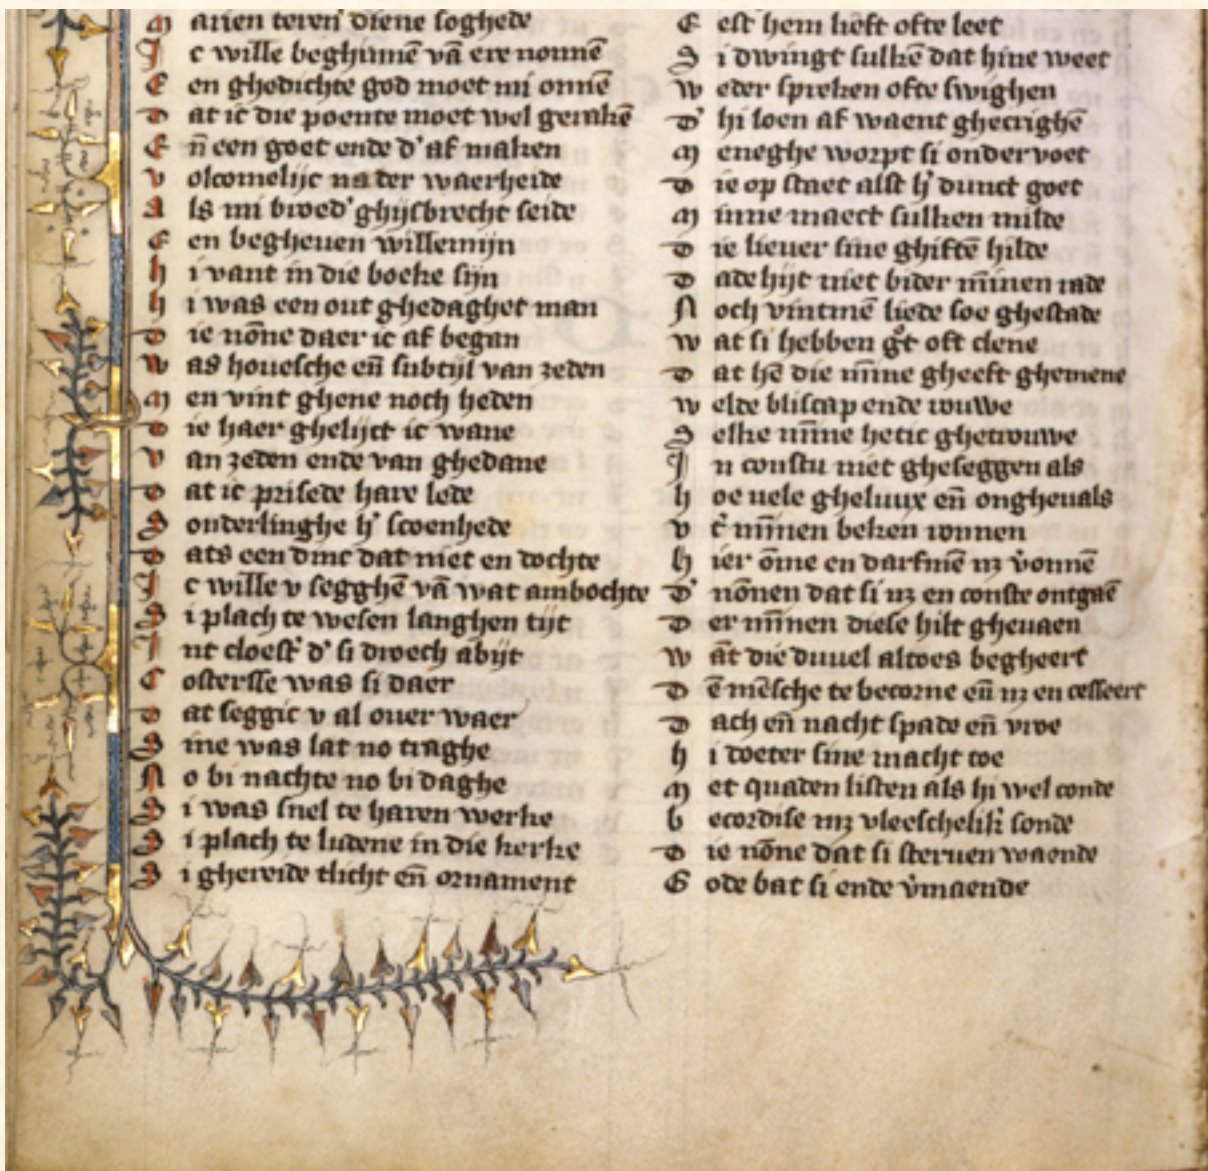 M arien teren diene soghede
J c wille beghinnē vā ere nonnē
E en ghedichte god moet mi onnē
D at ic die poente moet wel gerakē
E n̄ een goet ende d' af maken
V olcomelijc na der waerheide
A ls mi broed' ghijsbrecht seide
E en begheuen willemijn
H i vant in die boeke sijn
H i was een out ghedaghet man
D ie nōne daer ic af began
W as houesche en̄ subtijl van zeden
M en vint ghene noch heden
D ie haer ghelijct ic wane
V an zeden ende van ghedane
D at ic prisede hare lede
S onderlinghe h' scoenhede
D ats een dinc dat niet en dochte
J c wille v segghē vā wat ambochte
S i plach te wesen langhen tijt
J nt cloest' d' si droech abijt
C ostersse was si daer
D at seggic v al ouer waer
S ine was lat no traghe
N o bi nachte no bi daghe
S i was snel te haren werke
S i plach te ludene in die kerke
S i ghereide tlicht en̄ ornament
E est hem lieft ofte leet
S i dwingt sulkē dat hine weet
W eder spreken ofte swighen
D' hi loen af waent ghecrighē
M eneghe worpt si onder voet
D ie op staet alst h' dunct goet
M inne maect sulken milde
D ie lieuer sine ghiftē hilde
D ade hijt niet bider mīnen rade
N och vintmē liede soe ghestade
W at si hebben gͦt oft clene
D at hē die mīne gheeft ghemene
W elde bliscap ende rouwe
S elke mīne hetic ghetrouwe
J n constu niet gheseggen als
H oe uele gheluux en̄ ongheuals
V t' mīnen beken ronnen
H ier ōme en darfmē nꝫ v'onnē
D' nōnen dat si nꝫ en conste ontgaē
D er mīnen diese hilt gheuaen
W āt die duuel altoes begheert
D ē mēsche te becorne en̄ nꝫ en cesseert
D ach en̄ nacht spade en̄ vroe
H i doeter sine macht toe
M et quaden listen als hi wel conde
B ecordise nꝫ vleeschelik' sonde
D ie nōne dat si steruen waende
G ode bat si ende v'maende